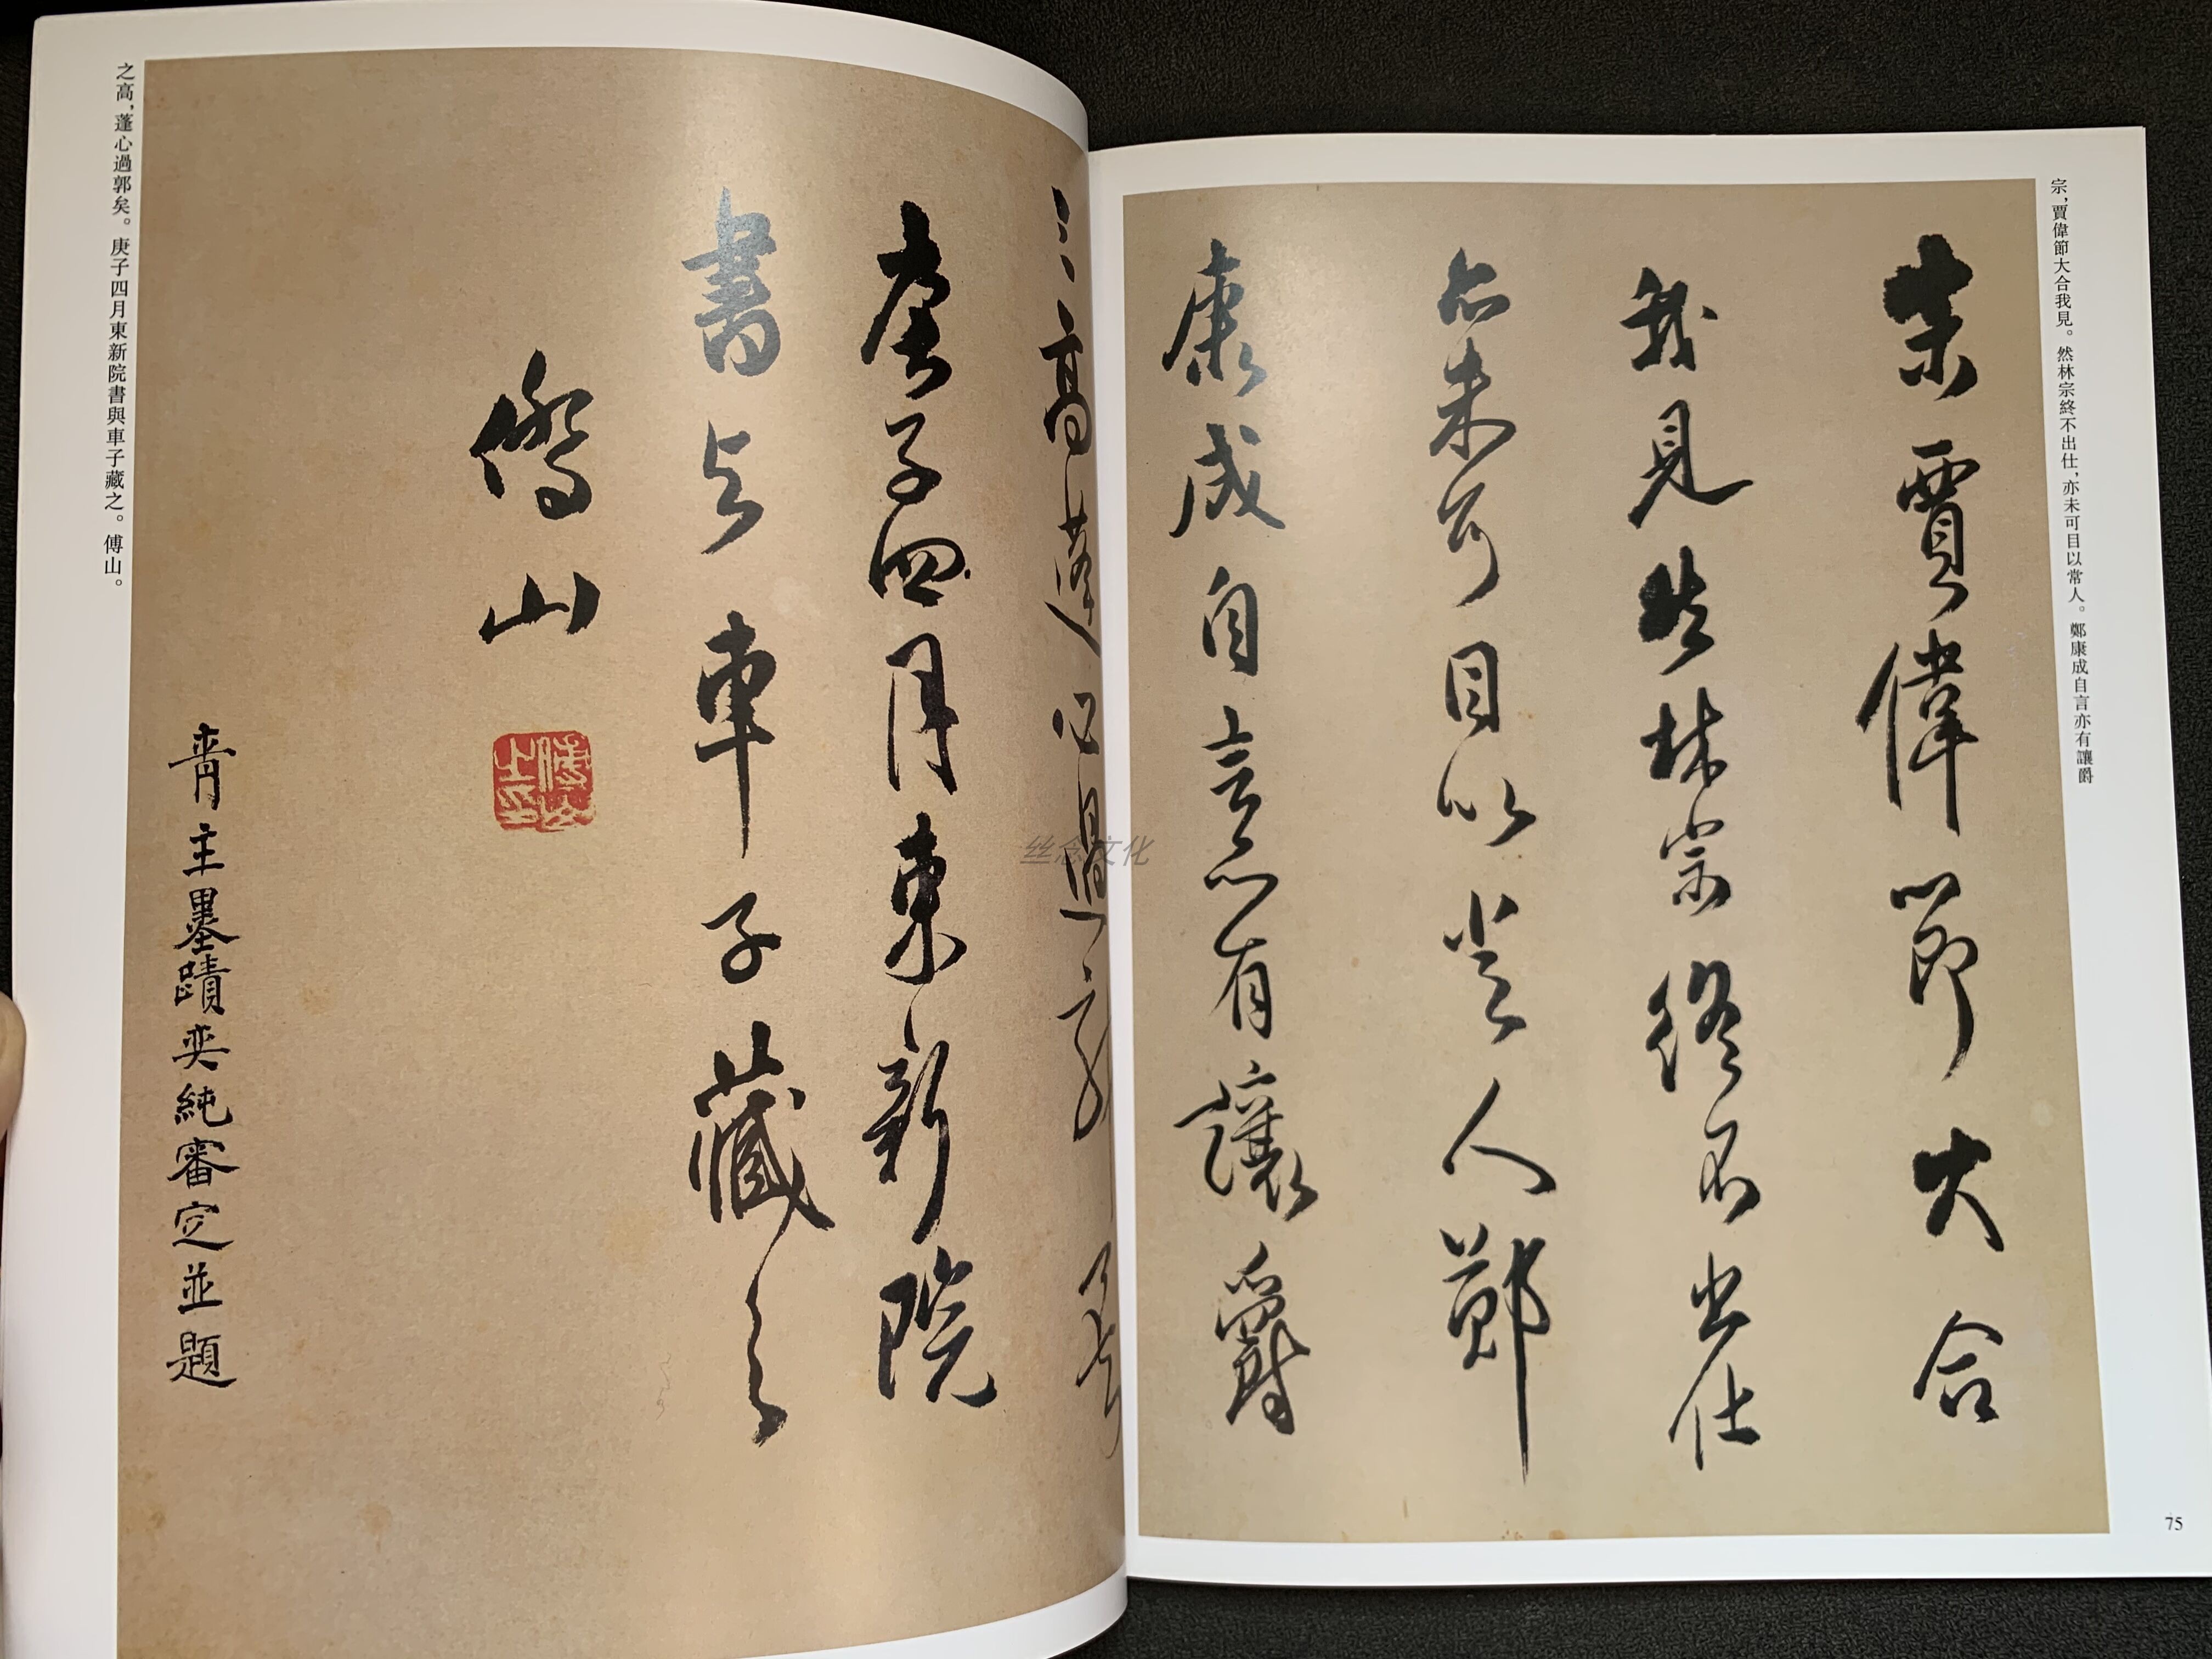 宗，賈偉節大合我見。然林宗終不出仕，亦未可目以常人。鄭康成自言亦有讓爵
宗賈偉節大合
我見然林宗終不出仕
亦未可目以常人鄭
康成自言亦有讓爵
75
之高蓬心過郭矣
庚子四月東新院
書与車子藏之
傅山
青主墨蹟奕純審定並題
之高，蓬心過郭矣。庚子四月東新院書與車子藏之。傅山。
丝念文化